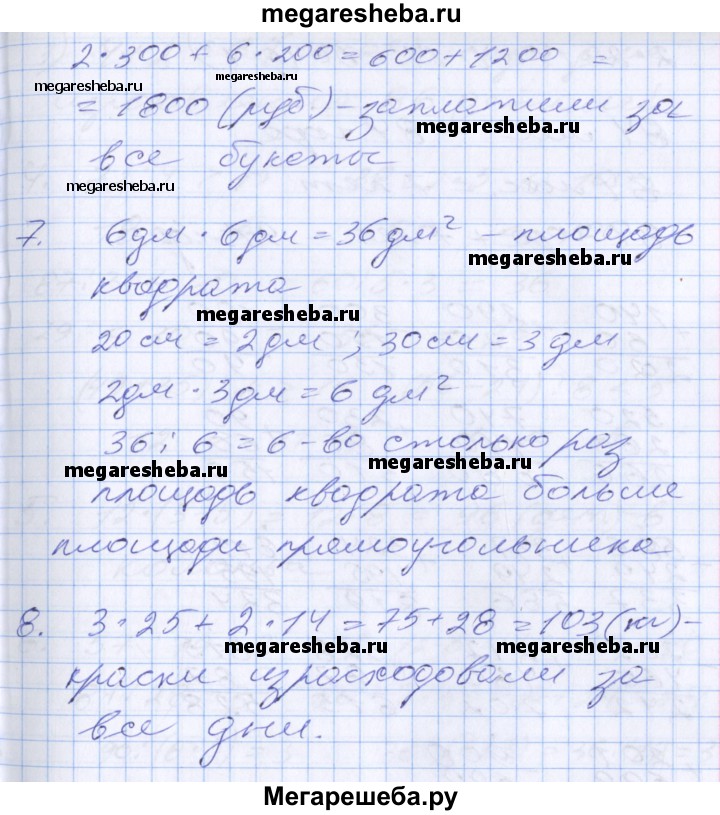 megaresheba.ru
2·300+6·200=600+1200 =
megaresheba.ru megaresheba.ru
=1800 (руб) - заплатили за
megaresheba.ru
все букеты
megaresheba.ru
7. 6дм·6дм=36дм² - площадь
megaresheba.ru
квадрата
megaresheba.ru
20см=2дм; 30см=3дм
2дм·3дм=6дм²
36:6=6-во столько раз
megaresheba.ru megaresheba.ru
площадь квадрата больше
площади прямоугольника
8. 3·25+2·14=75+28=103(кг)-
megaresheba.ru megaresheba.ru
краски израсходовали за
все дни.
Мегарешеба.ру